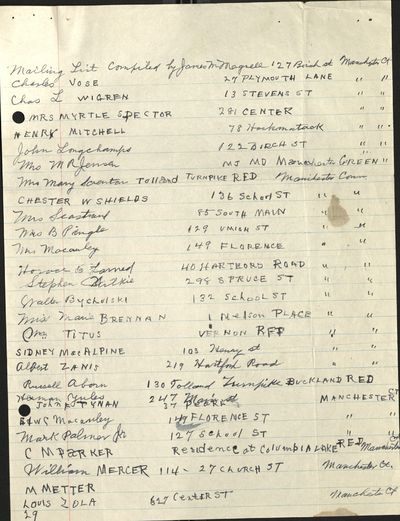 Mailing List Compiled by James McNagrell 127 Birch st Manchester Ct
Charles VOSE 27 PLYMOUTH LANE " "
Chas L WIGREN 13 STEVENS ST " "
MRS MYRTLE SPECTOR 281 CENTER " "
HENRY MITCHELL 78 Hockomatack " "
John Longchamps 122 BIRCH ST " "
Mrs M R Jensen Manchester GREEN "
Mrs Mary Scranton Tolland TURNPIKE RED Manchester Conn.
CHESTER W SHIELDS 136 School ST " "
Mrs Seastrand 85 SOUTH MAIN " "
Mrs B Pringle 129 UNION ST " "
Mrs Macauley 149 FLORENCE " "
Horace E Larned 40 HARTFORD ROAD " "
Stephen 298 SPRUCE ST " "
Walter Bycholski 132 SCHOOL ST " "
Miss Marie BRENNAN 1 Nelson PLACE " "
TITUS VERNON RFD " "
SIDNEY MacALPINE 103 Henry st " "
Albert ZANIS 219 Hartford Road " "
Russell Aborn 130 Tolland Turnpike BUCKLAND RED
Herman Yules 247 MANCHESTER CT
John TYNAN 37
Macauley 149 FLORENCE ST " "
Mark Palmer Jr 127 School ST " "
C M PARKER Residence at Columbia LAKE RED Manchester
William MERCER 114-27 CHURCH ST Manchester Ct.
M METTER
LOUIS ZOLA 827 Center ST Manchester Ct
29